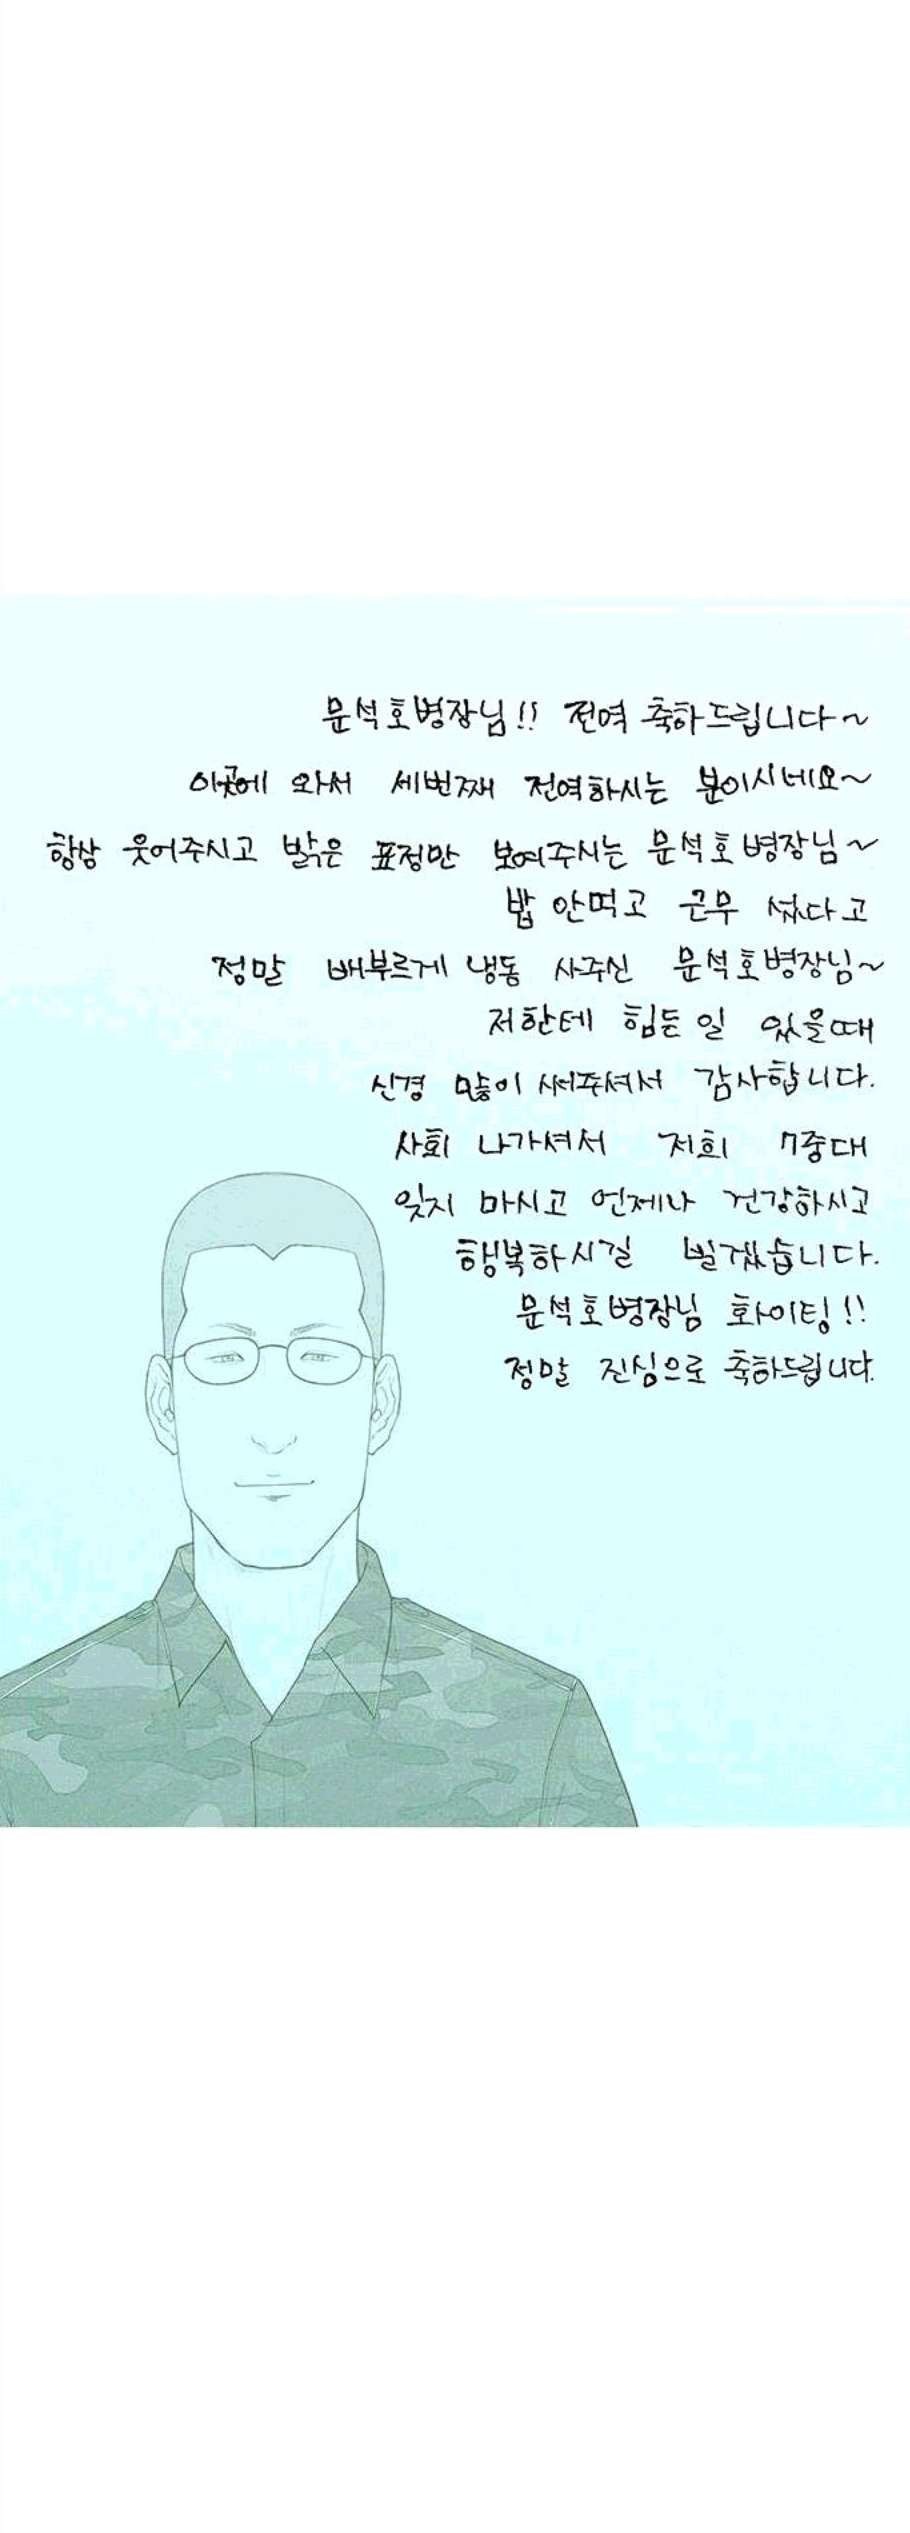 문석호병장님!! 전역 축하드립니다~
이곳에 와서 세번째 전역하시는 분이시네요~
항상 웃어주시고 밝은 표정만 보여주시는 문석호병장님~
밥 안먹고 근무 섰다고
정말 배부르게 냉동 사주신 문석호병장님~
저한테 힘든일 있을때
신경 많이 써주셔서 감사합니다.
사회 나가셔서 저희 7중대
잊지 마시고 언제나 건강하시고
행복하시길 빌겠습니다.
문석호병장님 화이팅!!
정말 진심으로 축하드립니다.